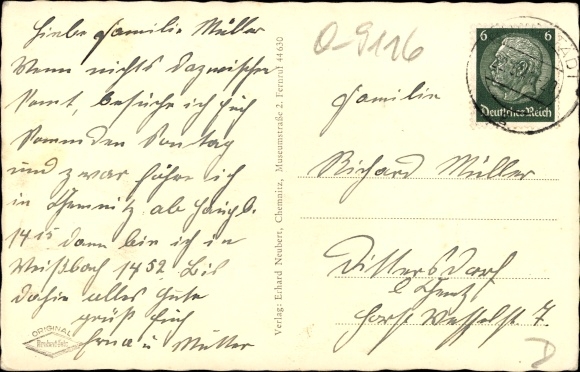 Liebe Familie Müller
Wenn nichts dazwischen
kommt, besuche ich Euch
kommenden Sonntag
und zwar fahre ich
in Chemnitz ab Hauptb.
14 15 dann bin ich in
Weißbach 14 52. Bis
dahin alles Gute
grüßt Euch
Erna u Mutter
ORIGINAL
Verlag: Erhard Neubert, Chemnitz, Museumstraße 2, Fernruf 44630
O-9116
6 6
Deutsches Reich
STADT
Familie
Richard Müller
Dittersdorf
b Chemtz
Horst Wesselst 7.